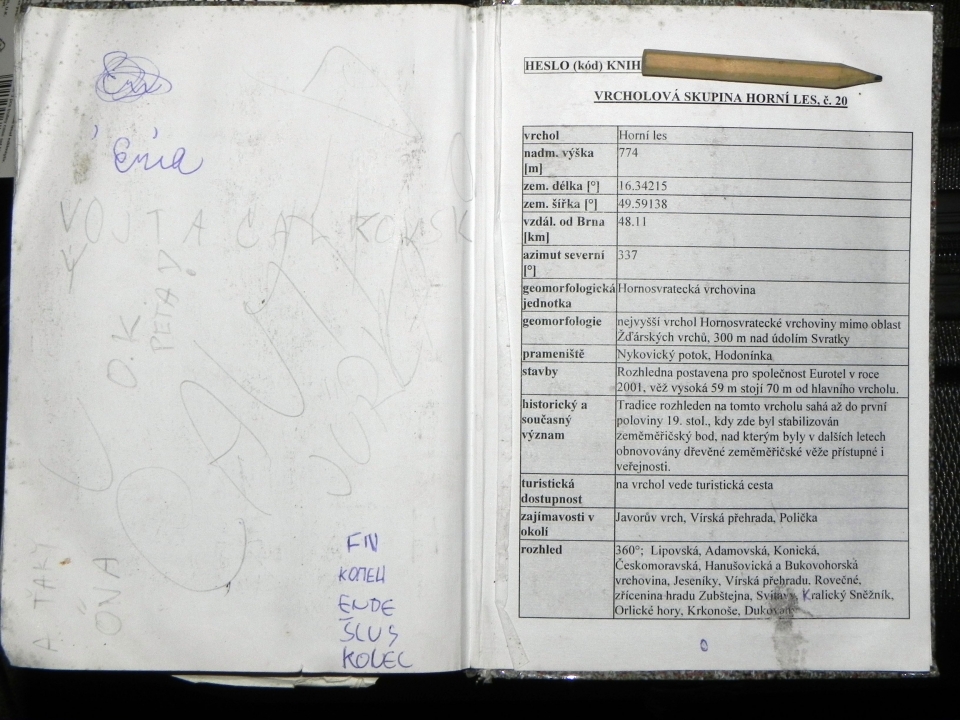 Ema
VOJTA CALKOVSK
Y
O.K
PETAY
A TAKY
FIN
KONEC
ENDE
ŠLUS
KOLEC
HESLO (kód) KNIH
VRCHOLOVÁ SKUPINA HORNÍ LES, č. 20
vrchol Horní les
nadm. výška 774
[m]
zem. délka [°] 16.34215
zem. šířka [°] 49.59138
vzdál. od Brna 48.11
[km]
azimut severní 337
[°]
geomorfologická Hornosvratecká vrchovina
jednotka
geomorfologie nejvyšší vrchol Hornosvratecké vrchoviny mimo oblast
Žďárských vrchů, 300 m nad údolím Svratky
prameniště Nykovický potok, Hodonínka
stavby Rozhledna postavena pro společnost Eurotel v roce
2001, věž vysoká 59 m stojí 70 m od hlavního vrcholu.
historický a Tradice rozhleden na tomto vrcholu sahá až do první
současný poloviny 19. stol., kdy zde byl stabilizován
význam zeměměřičský bod, nad kterým byly v dalších letech
obnovovány dřevěné zeměměřičské věže přístupné i
veřejnosti.
turistická na vrchol vede turistická cesta
dostupnost
zajímavosti v Javorův vrch, Vírská přehrada, Polička
okolí
rozhled 360°; Lipovská, Adamovská, Konická,
Českomoravská, Hanušovická a Bukovohorská
vrchovina, Jeseníky, Vírská přehradu. Rovečné,
zřícenina hradu Zubštejna, Svitavy, Kralický Sněžník,
Orlické hory, Krkonoše, Dukovany